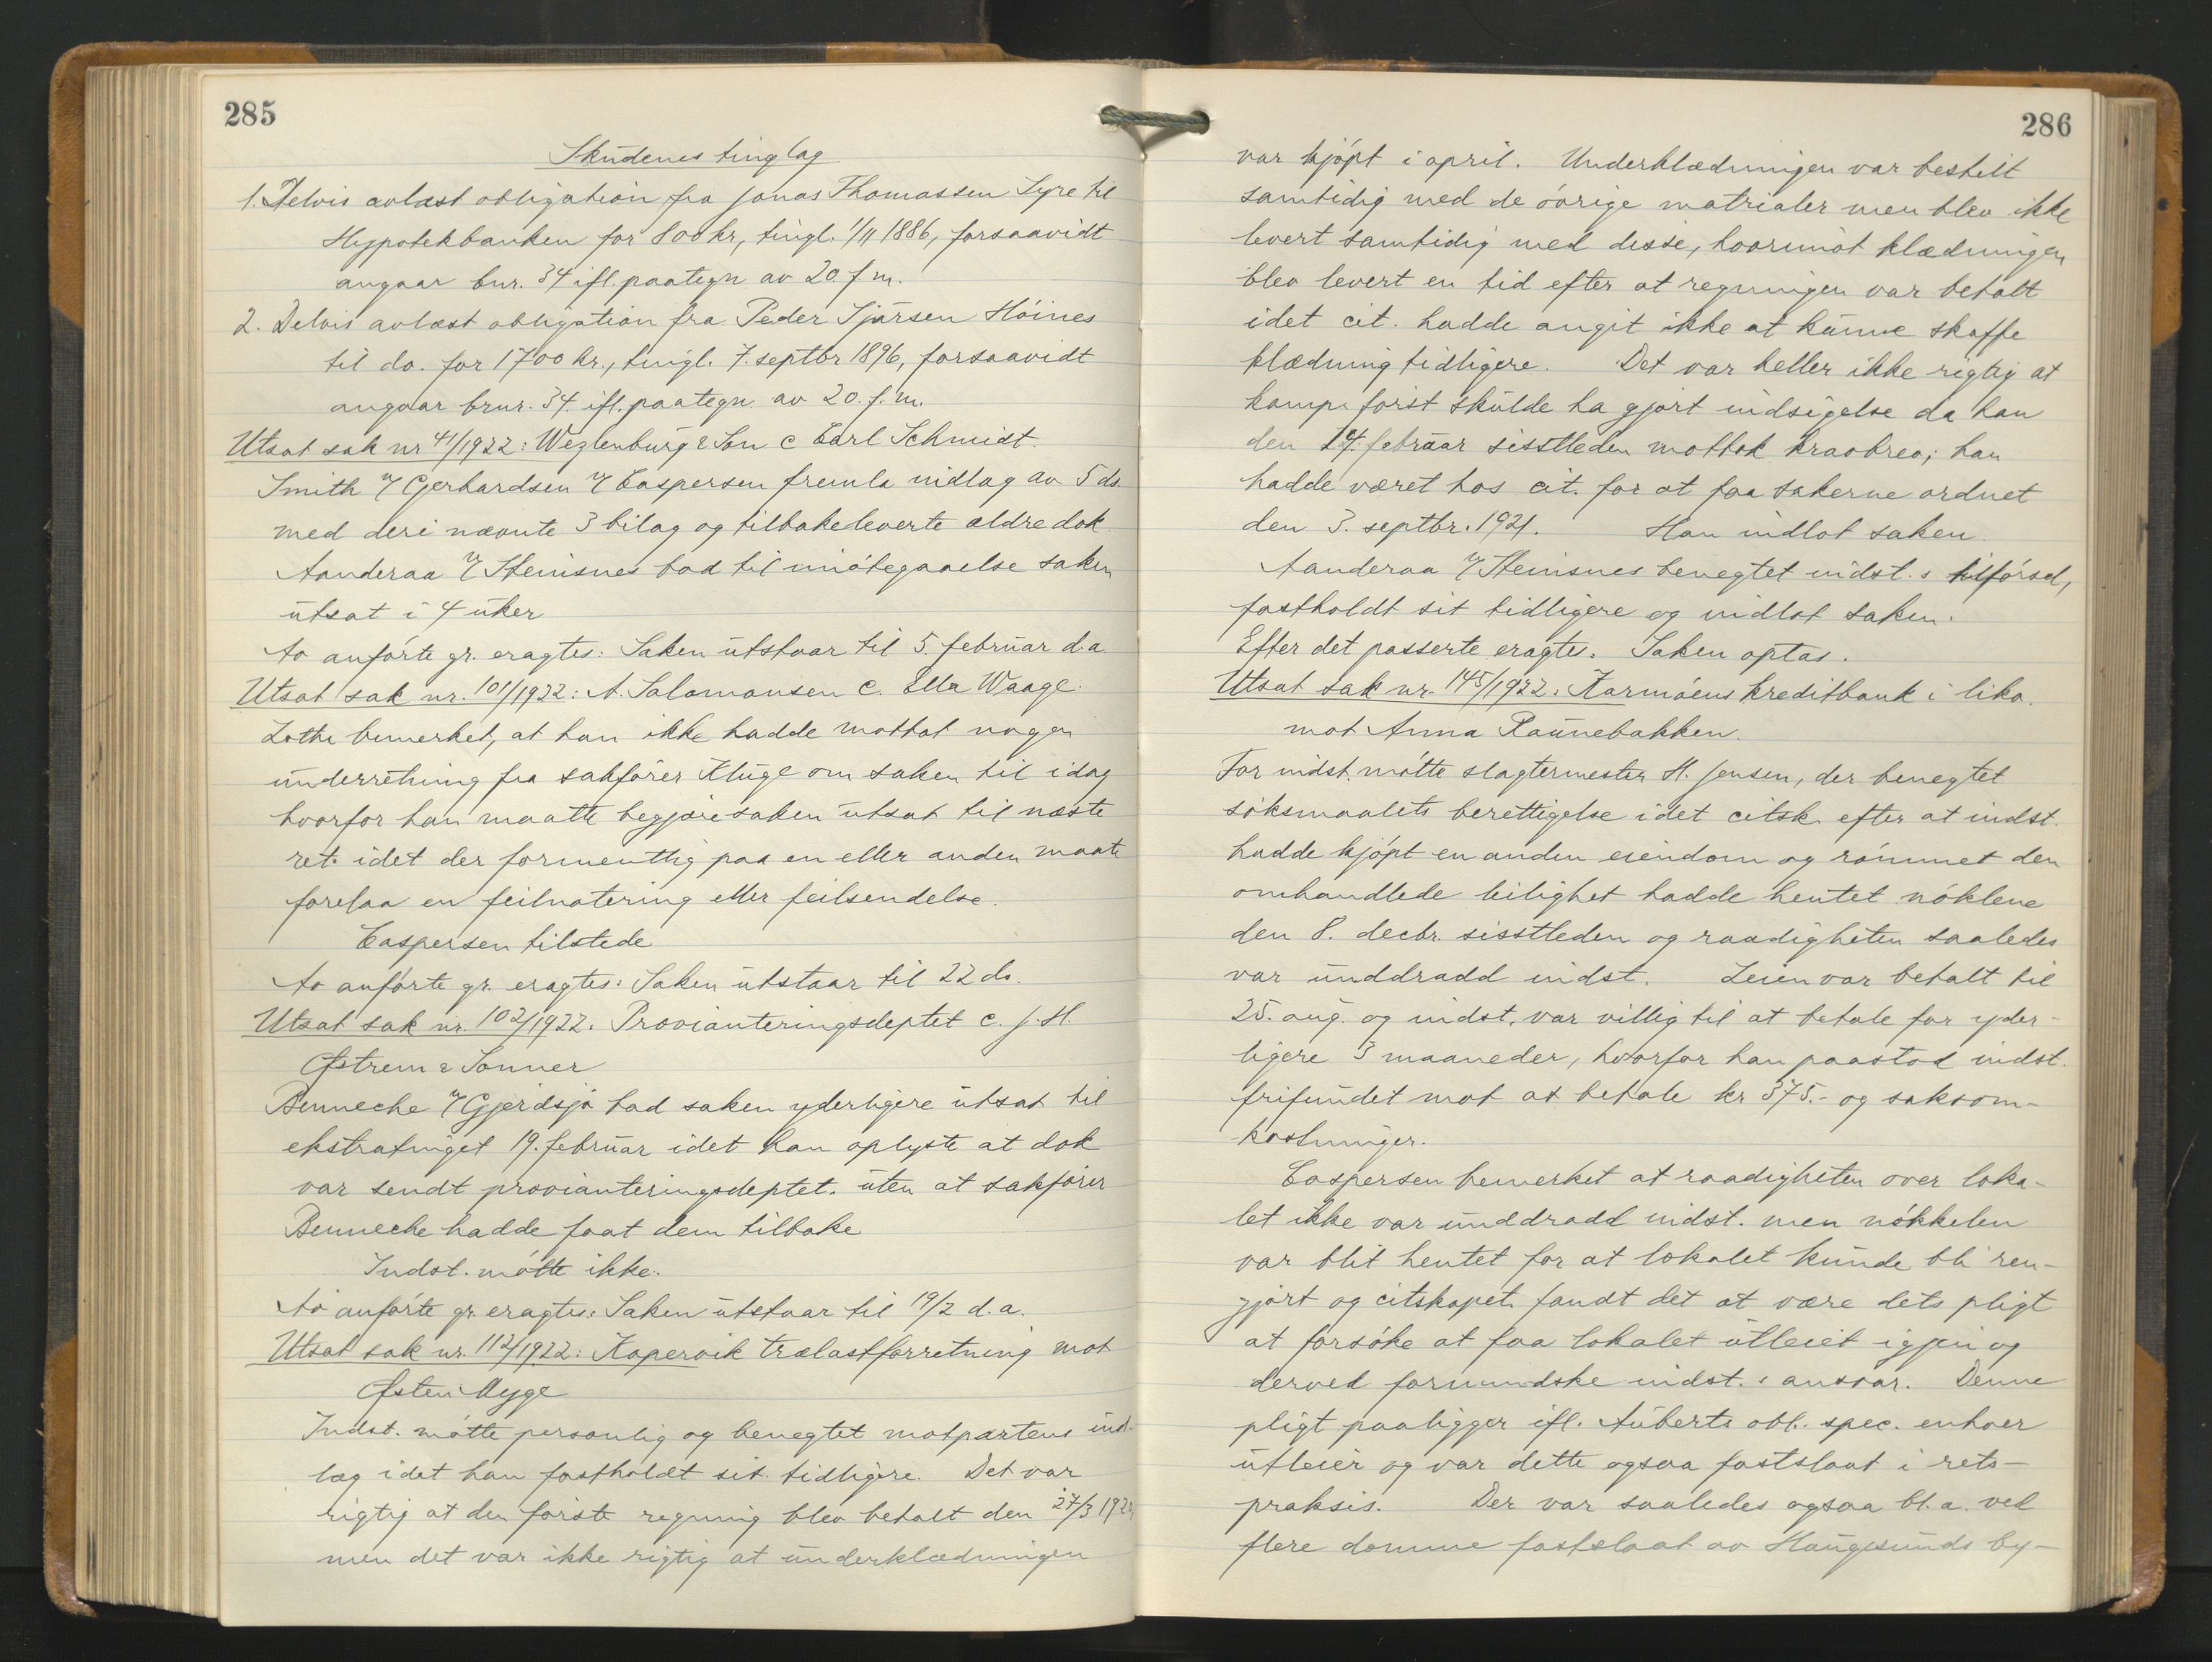 285
Skudenes tinglag
1. Delvis avlæst obligation fra Jonas Thomassen Syre til
Hypotekbanken for 800 kr, tingl. 1/11 1886, forsaavidt
angaar bnr. 34 ifl. paategn av 20. f m.
2. Delvis avlæst obligation fra Peder Sjursen Höines
til do. for 1700 kr., tingl. 7. septbr 1896, forsaavidt
angaar brnr. 34. ifl. paategn. av 20. f. m.
Utsat sak nr 41/1922: Weglenburg & Son c Carl Schmidt.
Smith v/ Gerhardsen v/ Caspersen fremla indlag av 5 ds.
med deri nævnte 3 bilag og tilbakeleverte ældre dok.
Aanderaa v/ Steinsnes bad til imötegaaelse saken
utsat i 4 uker
Av anförte gr. eragtes: Saken utstaar til 5. februar d.a
Utsat sak nr. 101/1922: A. Salomonsen c. Ella Waage.
Lothe bemerket, at han ikke hadde mottat nogen
underretning fra sakförer Kluge om saken til idag
hvorfor han maatte begjære saken utsat til næste
ret. idet der formentlig paa en eller anden maate
forelaa en feilnotering eller feilsendelse.
Caspersen tilstede
Av anförte gr. eragtes: Saken utstaar til 22 ds.
Utsat sak nr. 102/1922. Provianteringsdeptet c. J. H.
Østrem & Sönner
Benneche v/ Gjerdsjö bad saken yderligere utsat til
ekstratinget 19. februar idet han oplyste at dok
var sendt provianteringsdeptet. uten at sakförer
Benneche hadde faat dem tilbake
Indst. mötte ikke.
Av anförte gr. eragtes: Saken utstaar til 19/2 d. a.
Utsat sak nr. 112/1922: Kopervik trælastforretning mot
Østen Myge
Indst. mötte personlig og benegtet motpartens ind-
læg idet han fastholdt sit tidligere. Det var
rigtig at den förste regning blev betalt den 27/3 192
men det var ikke rigtig at underklædningen
286
var kjöpt i april. Underklædningen var bestilt
samtidig med de övrige matrialer men blev ikke
levert samtidig med disse, hvorimot klædningen
blev levert en tid efter at regningen var betalt
idet cit. hadde angit ikke at kunne skaffe
klædning tidligere. Det var heller ikke rigtig at
komp. först skulde ha gjort indsigelse da han
den 14. februar sisstleden mottok kravbrev; han
hadde været hos cit. for at faa sakerne ordnet
den 3. septbr. 1921. Han indlot saken.
Aanderaa v/ Steinsnes benegtet indst.s tilförsel,
fastholdt sit tidligere og indlot saken.
Efter det passerte eragtes: Saken optas.
Utsat sak nr. 145/1922. Karmöens kreditbank i likv.
mot Anna Raunebakken.
For indst. mötte slagtermester H. Jensen, der benegtet
söksmaalets berettigelse idet citsk. efter at indst.
hadde kjöpt en anden eiendom og römmet den
omhandlede leilighet hadde hentet nöklene
den 8. decbr. sisstleden og raadigheten saaledes
var unddradd indst. Leien var betalt til
25. aug. og indst. var villig til at betale for yder-
ligere 3 maaneder, hvorfor han paastod indst.
frifundet mot at betale kr 375.- og saksom-
kostninger.
Caspersen bemerket at raadigheten over loka-
let ikke var unddradd indst. men nökkelen
var blit hentet for at lokalet kunde bli ren-
gjort og citskapet fandt det at være dets pligt
at forsöke at faa lokalet utleiet igjen og
derved formindske indst.s ansvar. Denne
pligt paaligger ifl. Auberts obl. spec. enhver
utleier og var dette ogsaa fastslaat i rets-
praksis. Der var saaledes ogsaa bl. a. ved
flere domme fastslaat av Haugesunds by-